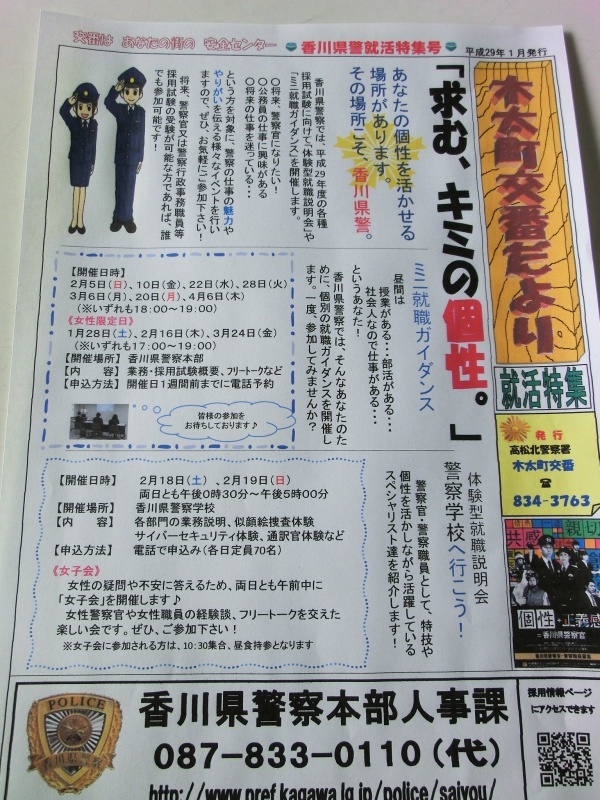 交番は あなたの街の 安全センター
香川県警就活特集号
平成29年1月発行
木太町交番だより
就活特集
発行
高松北警察署
木太町交番
☎
834-3763
「求む、キミの個性。」
あなたの個性を活かせる
場所があります。
その場所こそ、香川県警。
香川県警では、平成29年度の各種
採用試験に向けて「体験型就職説明会」や
「ミニ就職ガイダンス」を開催します。
○将来、警察官になりたい!
○公務員の仕事に興味がある
○将来の仕事を迷っている・・・
という方を対象に、警察の仕事の魅力や
やりがいを伝える様々なイベントを行い
ますので、ぜひ、お気軽にご参加下さい!
将来、警察官又は警察行政事務職員等
採用試験の受験が可能な方であれば、誰
でも参加可能です!
ミニ就職ガイダンス
昼間は
授業がある・・・部活がある・・・
社会人なので仕事がある・・・
というあなた!
香川県警察では、そんなあなたのた
めに、個別の就職ガイダンスを開催し
ます。一度、参加してみませんか?
【開催日時】
2月5日(日)、10日(金)、22日(水)、28日(火)
3月6日(月)、20日(月)、4月6日(木)
(※いずれも18:00~19:00)
《女性限定日》
1月28日(土)、2月16日(木)、3月24日(金)
(※いずれも17:00~19:00)
【開催場所】 香川県警察本部
【内 容】 業務・採用試験概要、フリートークなど
【申込方法】 開催日1週間前までに電話予約
皆様の参加を
お待ちしております♪
体験型就職説明会
警察学校へ行こう!
警察官・警察職員として、特技や
個性を活かしながら活躍している
スペシャリスト達を紹介します!
【開催日時】 2月18日(土)、2月19日(日)
両日とも午後0時30分~午後5時00分
【開催場所】 香川県警察学校
【内 容】 各部門の業務説明、似顔絵捜査体験
サイバーセキュリティ体験、通訳官体験など
【申込方法】 電話で申込み(各日定員70名)
《女子会》
女性の疑問や不安に答えるため、両日とも午前中に
「女子会」を開催します♪
女性警察官や女性職員の経験談、フリートークを交えた
楽しい会です。ぜひ、ご参加下さい!
※女子会に参加される方は、10:30集合、昼食持参となります
共感
親切
個性・正義感
POLICE
香川県警察
香川県警察本部人事課
087-833-0110(代)
http://www.pref.kagawa.lg.jp/police/saiyou/
採用情報ページ
にアクセスできます